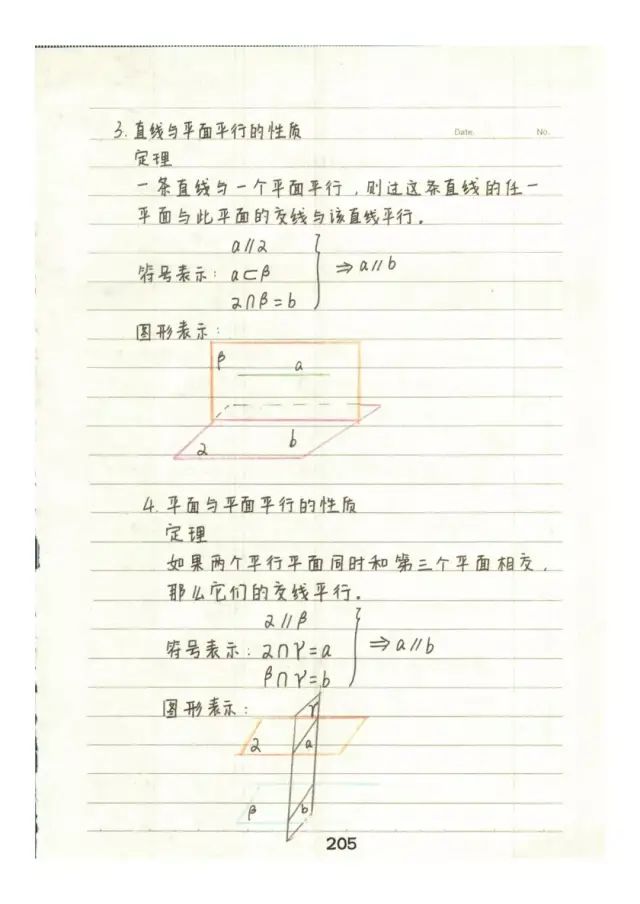 Date. No.
3. 直线与平面平行的性质
定理
一条直线与一个平面平行，则过这条直线的任一
平面与此平面的交线与该直线平行。
a∥α
符号表示: a⊂β ⇒ a∥b
α∩β=b
图形表示:
β a
α b
4. 平面与平面平行的性质
定理
如果两个平行平面同时和第三个平面相交，
那么它们的交线平行。
α∥β
符号表示: α∩γ=a ⇒ a∥b
β∩γ=b
图形表示:
γ
α a
β b
205